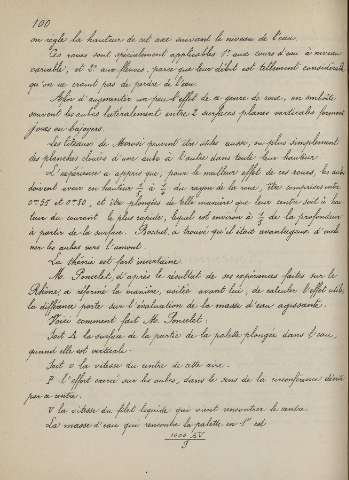 100
on règle la hauteur de cet axe suivant le niveau de l'eau.
Ces roues sont spécialement applicables 1° aux cours d'eau à niveau
variable, et 2° aux fleuves, parce que leur débit est tellement considérable
qu'on ne craint pas de perdre de l'eau.
Afin d'augmenter un peu l'effet de ce genre de roue, on emboîte
souvent les aubes latéralement entre 2 surfaces planes verticales formant
joues ou bajoyers.
Les liteaux de Morosi peuvent être utiles aussi, ou plus simplement
des planches clouées d'une aube à l'autre dans toute leur hauteur.
L'expérience a appris que, pour le meilleur effet de ces roues, les aubes
doivent avoir en hauteur du rayon de la roue, être comprises entre
et 0m80, et être plongées de telle manière que leur centre soit à hau
teur du courant le plus rapide, lequel est environ à de la profondeur
à partir de la surface. Bossut, a trouvé qu'il était avantageux d'incli
ner les aubes vers l'amont.
La théorie est fort incertaine.
M. Poncelet, d'après le résultat de ses expériences faites sur le
Rhône, a réformé la manière, usitée avant lui, de calculer l'effet utile,
la différence porte sur l'évaluation de la masse d'eau agissante.
Voici comment fait M. Poncelet.
Soit la surface de la partie de la palette plongée dans l'eau,
quand elle est verticale.
Soit v la vitesse au centre de cette aire.
P l'effort exercé sur les aubes, dans le sens de la circonférence décrite
par ce centre.
V la vitesse du filet liquide qui vient rencontrer le centre.
La masse d'eau que rencontre la palette en 1" est
1000 AV
g